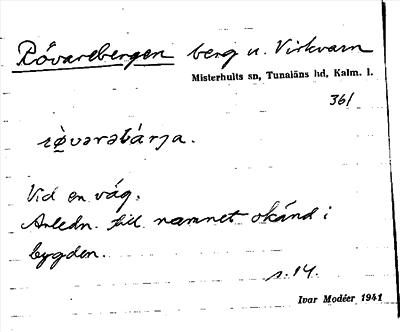 Rövarebergen berg u. Virkvarn
Misterhults sn, Tunaläns hd, Kalm. l.
361
Vid en väg.
Anledn. till namnet okänd i
bygden.
s. 14.
Ivar Modéer 1941